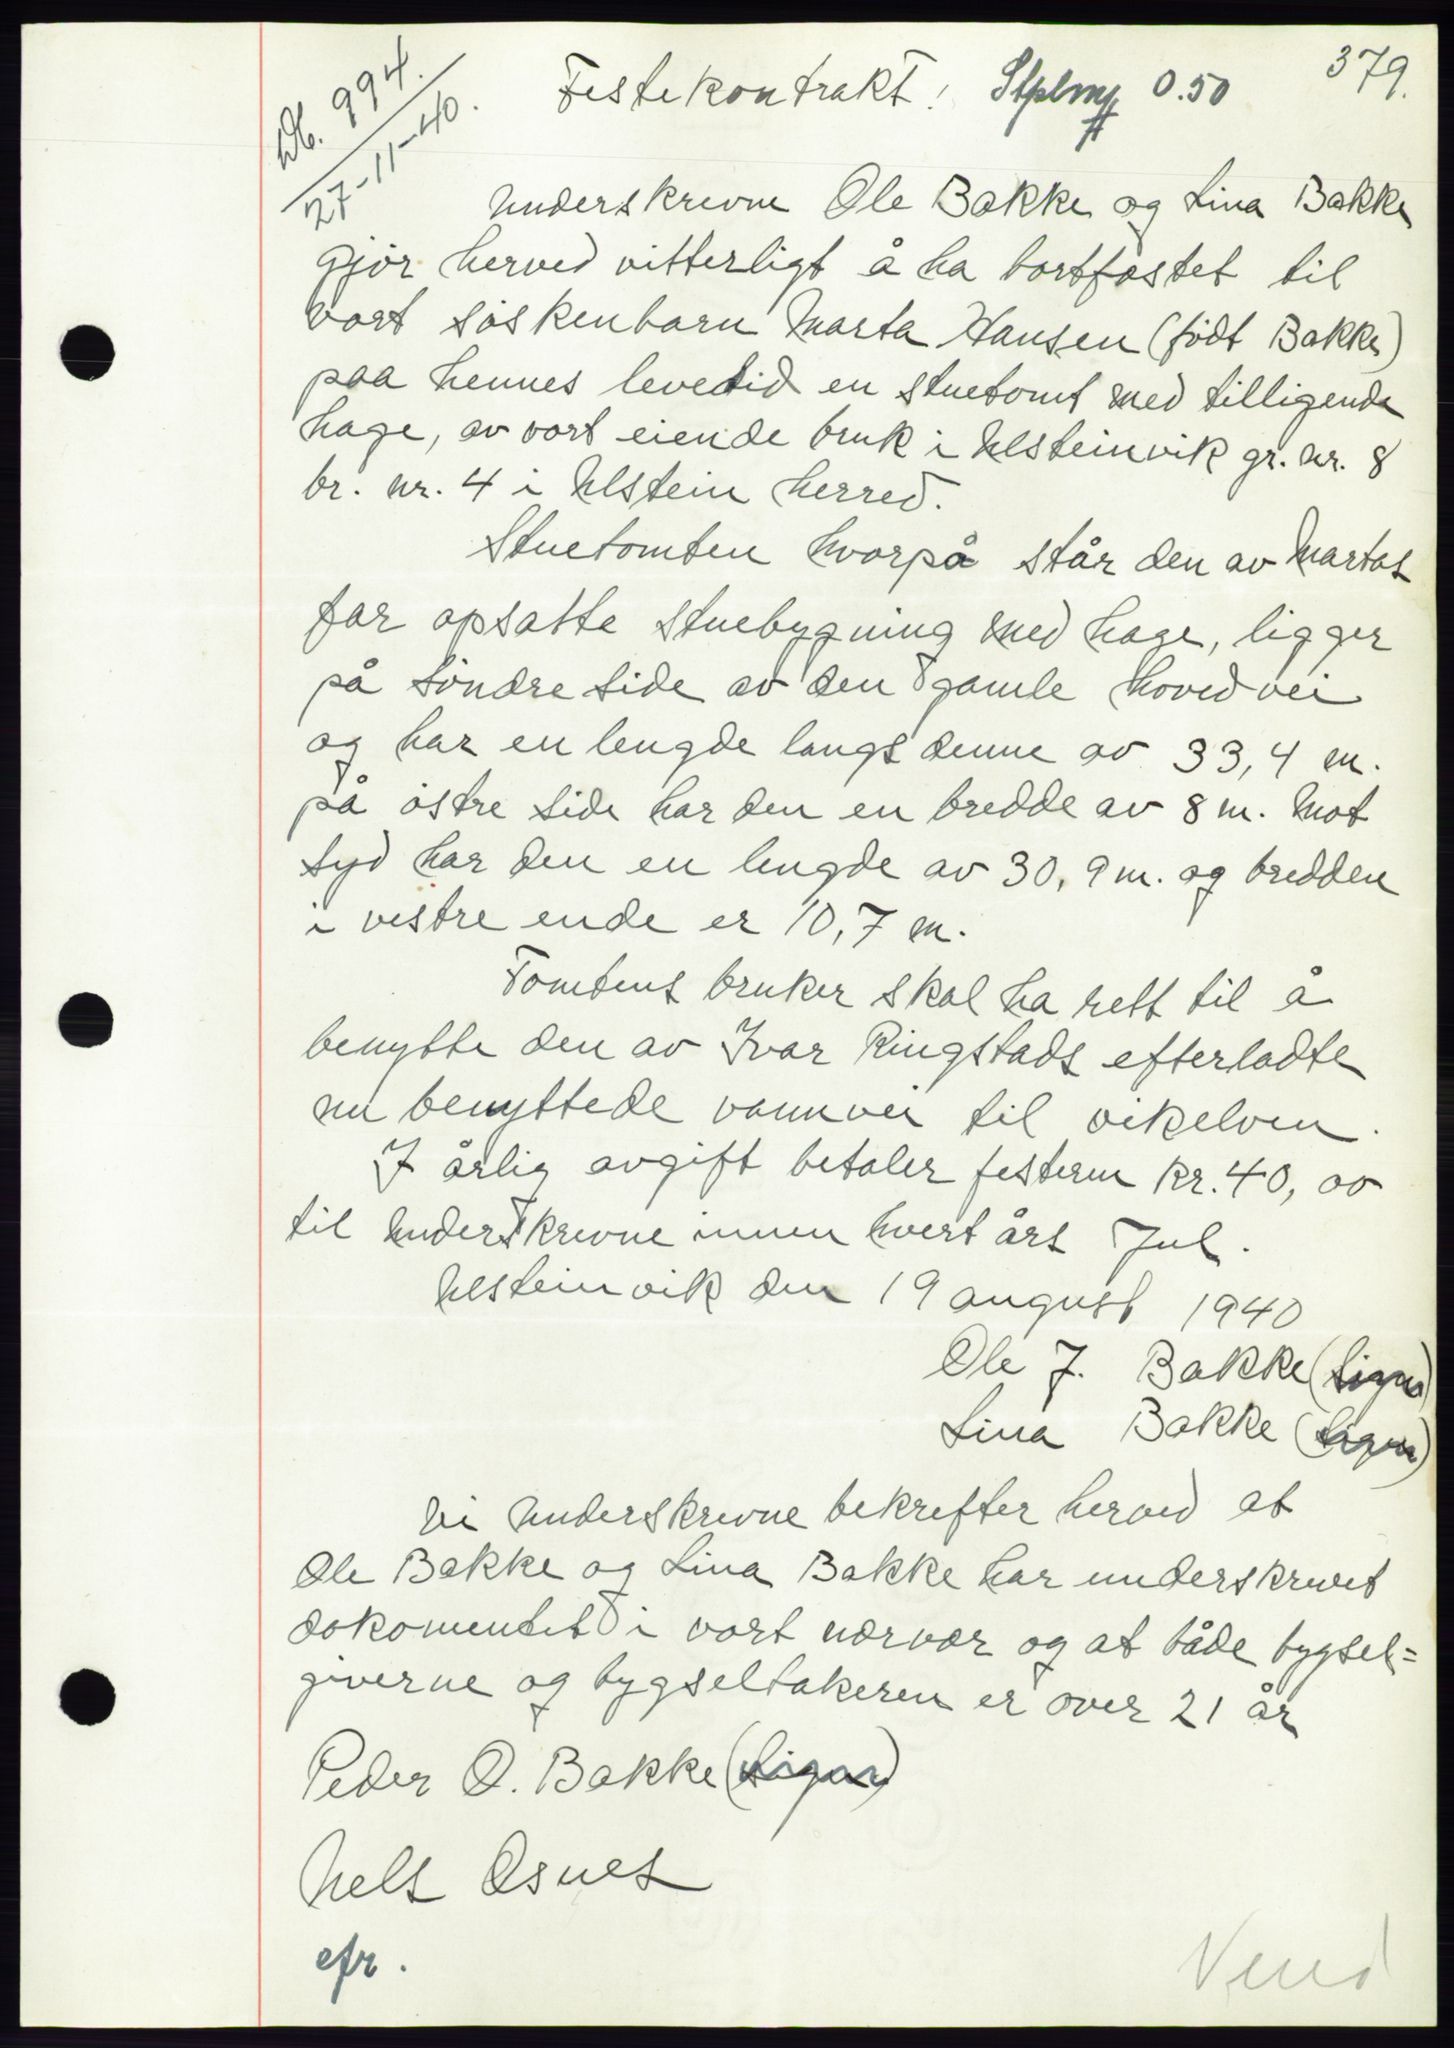 379.
Db. 994.
27-11-40.
Festekontrakt! Stplmf 0.50
Underskrevne Ole Bakke og Lina Bakke
gjør herved vitterligt å ha bortfæstet til
vort søskenbarn Marta Hansen (født Bakke)
paa hennes levetid en stuetomt med tilligende
hage, av vort eiende bruk i Ulsteinvik gr. nr. 8
br. nr. 4 i Ulstein herred.
Stuetomten hvorpå står den av Martas
far opsatte stuebygning med hage, ligger
på søndre side av den gamle hovedvei
og har en lengde langs denne av 33,4 m.
på østre side har den en bredde av 8 m. Mot
syd har den en lengde av 30,9 m. og bredden
i vestre ende er 10,7 m.
Tomtens bruker skal ha rett til å
benytte den av Ivar Ringstads efterladte
nu benyttede vannvei til vikelven.
I årlig avgift betaler festeren kr. 40, av
til underskrevne innen hvert års Jul.
Ulsteinvik den 19 august 1940
Ole J. Bakke (Sign)
Lina Bakke (Sign)
Vi underskrevne bekrefter herved at
Ole Bakke og Lina Bakke har underskrevet
dokomentet i vort nærvær og at både bygsel=
giverne og bygseltakeren er over 21 år
Peder O. Bakke (Sign)
Nels Osnes
efr.
Vend